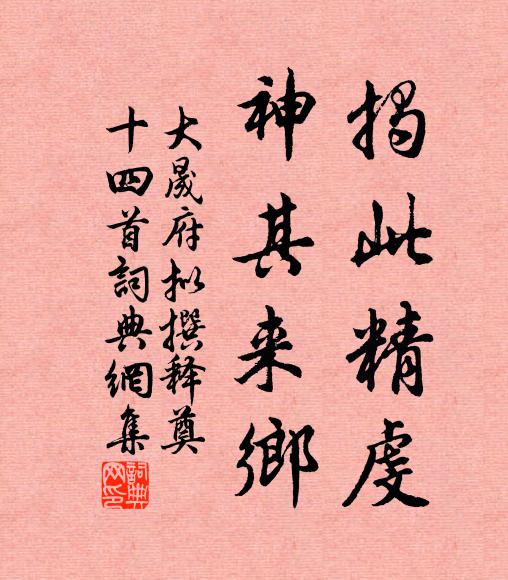 揭此精虔
神其来鄉
大晟府拟撰释奠
十四首詞典網集
詞典网印